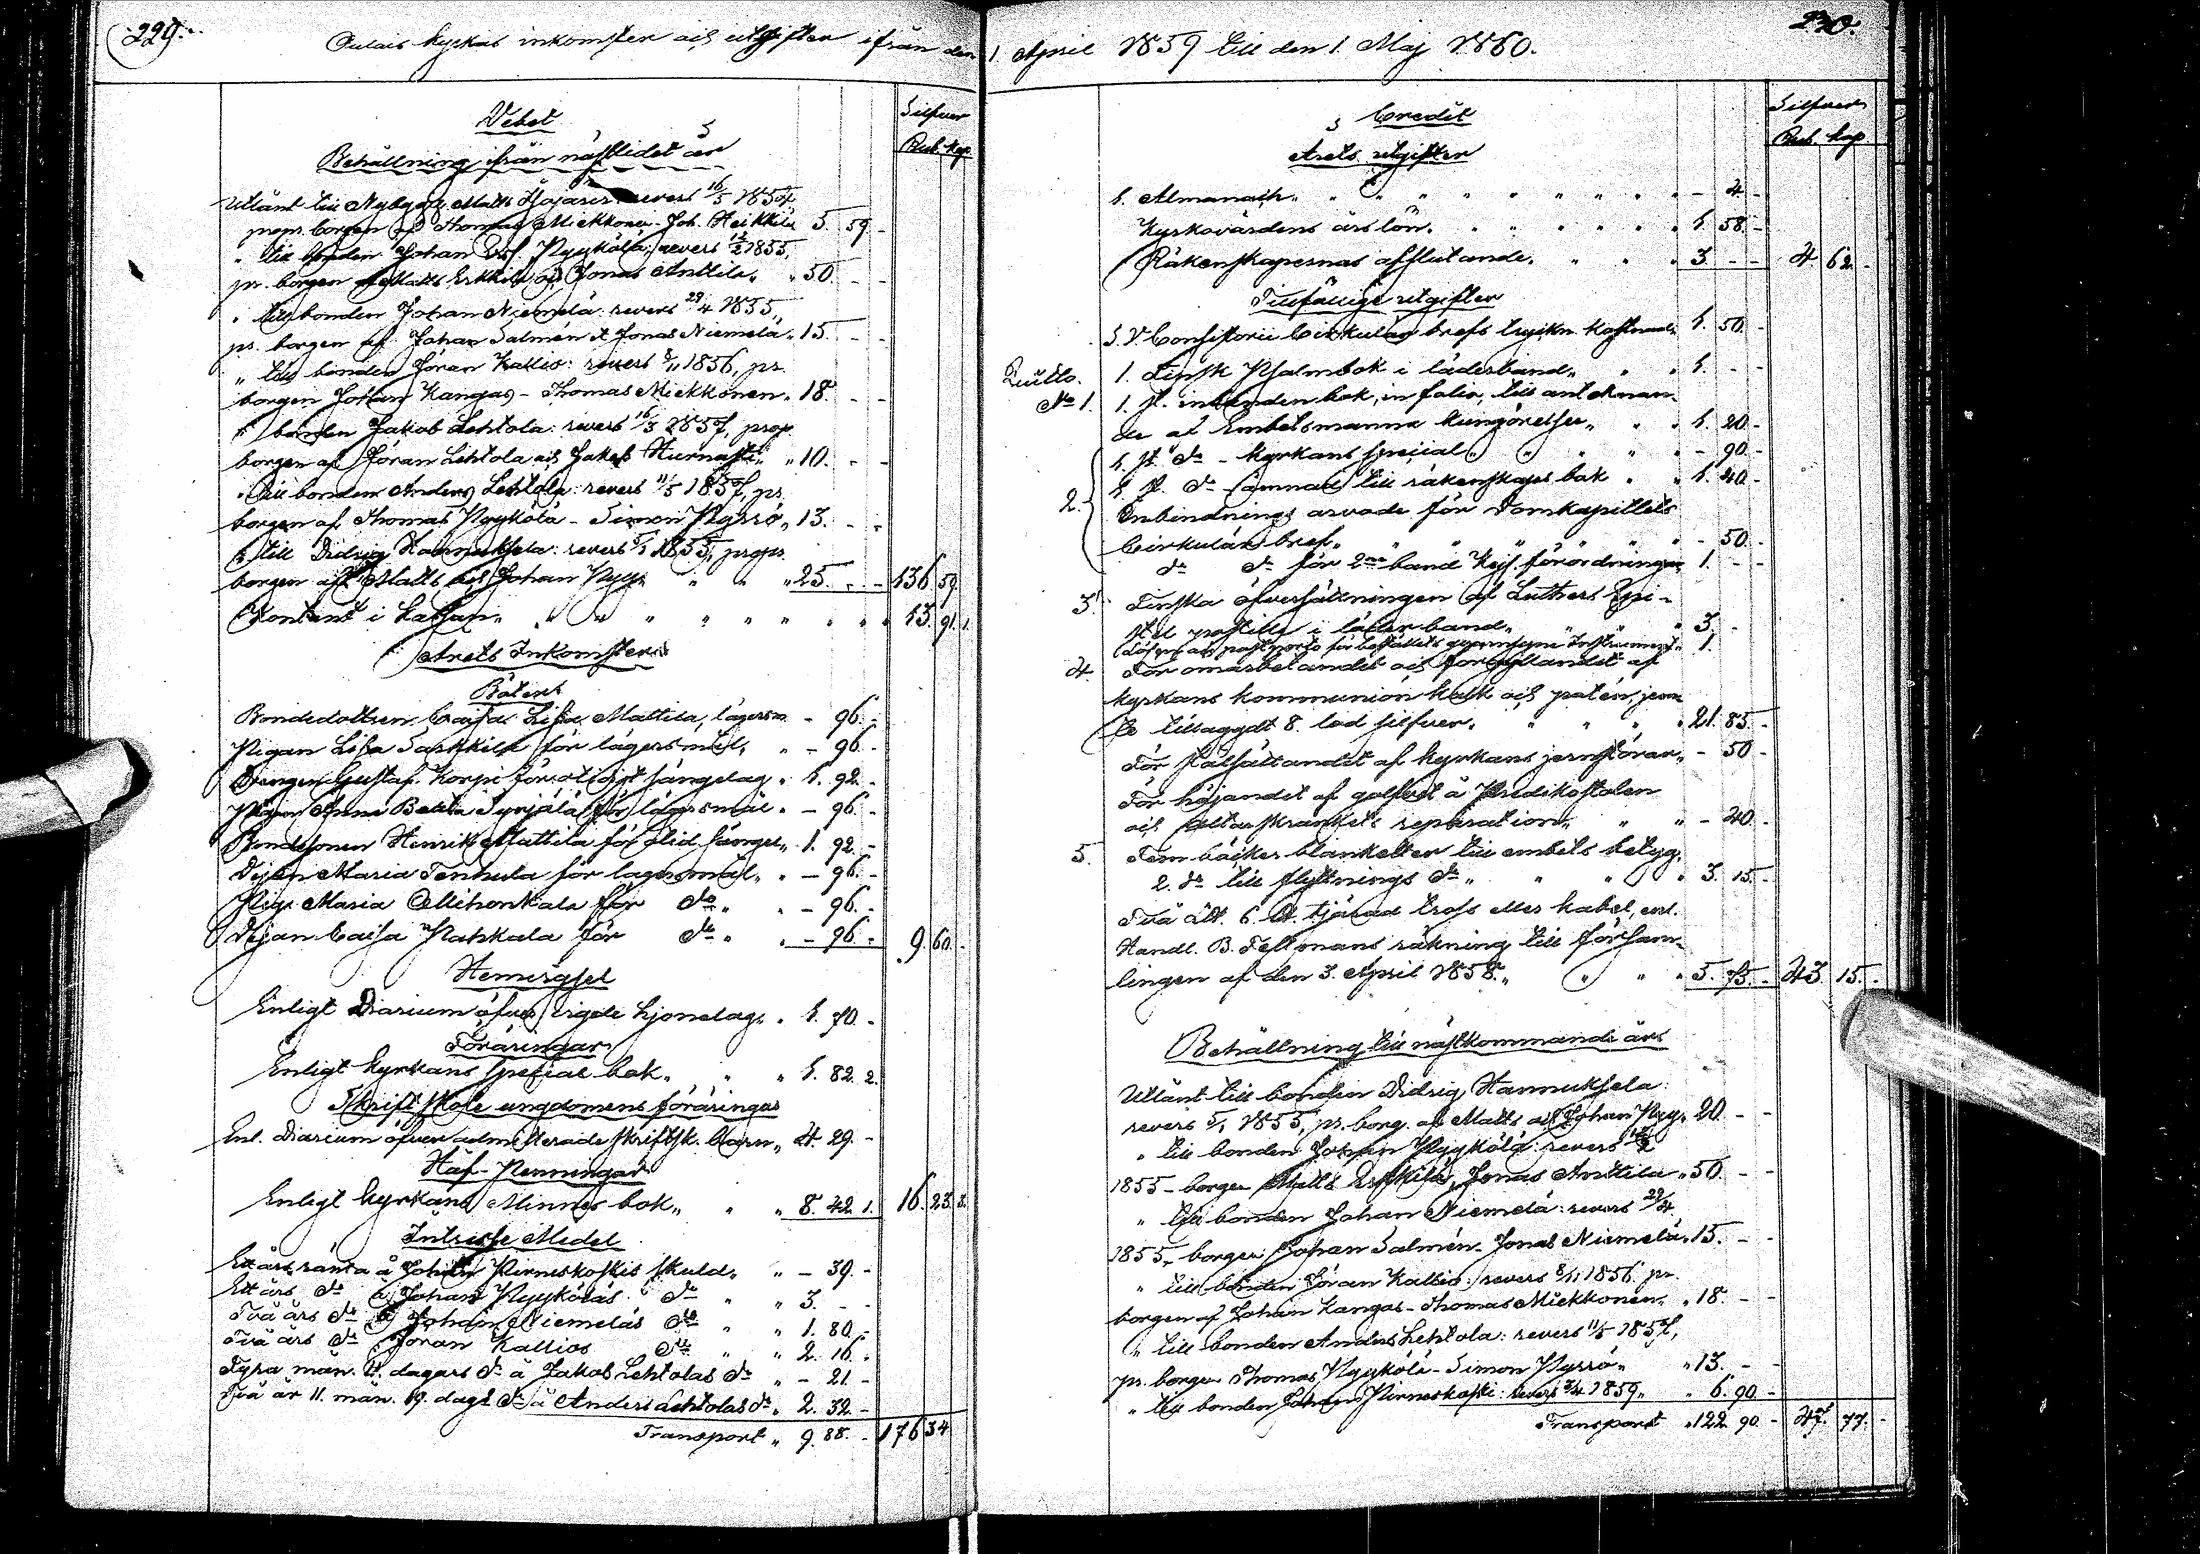 229.
Oulais kyrkas inkomster och utgifter ifrån den
Debet
Silfver
Rub. kop.
Behållning ifrån nästlidet år
Utlånt till Nybygg. Matts revers 16/5 1854,
propr. borgen af Thomas Miekkonen Joh. Heikkilä 5. 59. -
" till bonden Johan Pyykölä: revers 1855,
pr. borgen af Matts Erkkilä och Jonas Anttila " 50. - -
" till bonden Johan Niemelä: revers 29/4 1855,
pr. borgen af Johan Salmén & Jonas Niemelä " 15. - -
" till bonden Jöran Kallio: revers 8/11 1856, pr.
borgen Johan Kangas - Thomas Miekkonen " 18. - -
" bonden Jakob Lehtola: revers 16/3 1857, prop.
borgen af Jöran Lehtola och Jakob " 10. - -
" till bonden Anders Lehtola: revers 11/5 1857, pr.
borgen af Thomas Pyykölä - Simon Pyssö " 13. - -
" till Didrig Hannuksela: revers 5/1 1855, propr.
borgen af Matts och Johan Pyy " " " 25. - - 136 59.
Kontant i kassan " " " " " " " 13. 91. 1.
Årets Inkomster
Böter
Bondedottren Caisa Lisa Mattila, lägersm. - 96. -
Pigan Lisa för lägersmål, " - 96. -
Drengen Gustaf Korpi för otidigt sängelag " 1. 92. -
Pigan Anna Beata Syrjälä för lägersmål " - 96. -
Bondesonen Henrik Mattila för otid. sängel. 1. 92. -
Pigan Maria för lägersmål " - 96. -
Pig. Maria Alihonkala för do " - 96. -
Pigan Caisa Pahkala för do " - 96. - 9. 60. -
Hemvigsel
Enligt Diarium öfver vigde hjonelag " 1. 70. -
Föräringar
Enligt kyrkans special bok " " " 1. 82. 2.
Skriftskole ungdomens föräringar
Enl. Diarium öfver admitterade skriftsk. barn " 4. 29. -
Håf-Penningar
Enligt kyrkans Minnes bok " " " 8. 42. 1. 16. 23. 3.
Intresse Medel
Ett års ränta å Johan Pinneskoskis skuld " " - 39. -
Ett års do å Johan Pyykölás do " " 3. - -
Två års do å Johan Niemeläs do " " 1. 80. -
Två års do Jöran Kallios do " " 2. 16. -
Fyra mån. 4. dagars do å Jakob Lehtolas do " - 21. -
Två år 11. mån. 19. dags do å Anders Lehtolas do " 2. 32. -
Transport " 9. 88. - 176 34
230.
1. April 1859 till den 1. Maj 1860.
Credit
Silfver
Rub. kop.
Årets utgifter
1. Almanach " " " " " " " - 4. -
Kyrkovärdens årslön " " " " " 1. 58. -
Räkenskapernas afslutande " " " " 3. - - 4. 62. -
Tillfällige utgifter
S. V. Consistorii Cirkulär brefs tryckn. kostnad " 1. 50. -
Quitto. 1. Finsk Psalmbok i läderband " " " 1. - -
No 1. 1. st. inbunden bok, in folio, till antecknan-
de af Embetsmanna kungörelser " " " 1. 20. -
1. st. do - kyrkans special " " " " - 90. -
2. 1. st. do - ämnad till räkenskaps bok " " 1. 40. -
Inbindnings arvode för Domkapitlets
Cirkulär bref " " " " " " - 50. -
do do för 2ne band Kejs. förordningar 1. - -
3. Finska öfversättningen af Luthers Epi-
stel postilla i läderband " " " 3. -
1. -
4. För omarbetandet och förgyllandet af
kyrkans kommunion kalk och patén, jem-
te tillagydt 8. lod silfver " " " " 21. 85. -
För af kyrkans " - 50 -
För höjandet af golfvet å Predikostolen
och altarskrankets reparation " " " - 40. -
5. Fem böcker blanketter till embets betyg,
2. do till flyttnings do " " " " 3. 15. -
Två L℔. 6 ℔. tjärad tross eller kabel, enl.
Handl. B. Fellmans räkning till försam-
lingen af den 3. April 1858 " " " " 5. 75. - 43. 15. -
Behållning till nästkommande års
Utlånt till bonden Didrig Hannuksela:
revers 5/1 1855, pr. borg. af Matts och Johan Pyy " 20. - -
" till bonden Johan Pyykölä: revers
1855 - borgen Matts Erkkilä, Jonas Anttila " 50 - -
" till bonden Johan Niemelä: revers 29/4
1855, borgen Johan Salmén - Jonas Niemelä " 15. - -
" till bonden Jöran Kallio: revers 8/11 1856. pr.
borgen af Johan Kangas - Thomas Miekkonen " " 18. - -
" till bonden Anders Lehtola: revers 11/5 1857,
pr. borgen Thomas Pyykölä - Simon Pyssö " " 13. - -
" till bonden Johan Pinneskoski: revers 1859 " " 6. 90 -
Transport " 122. 90. - 47. 77. -